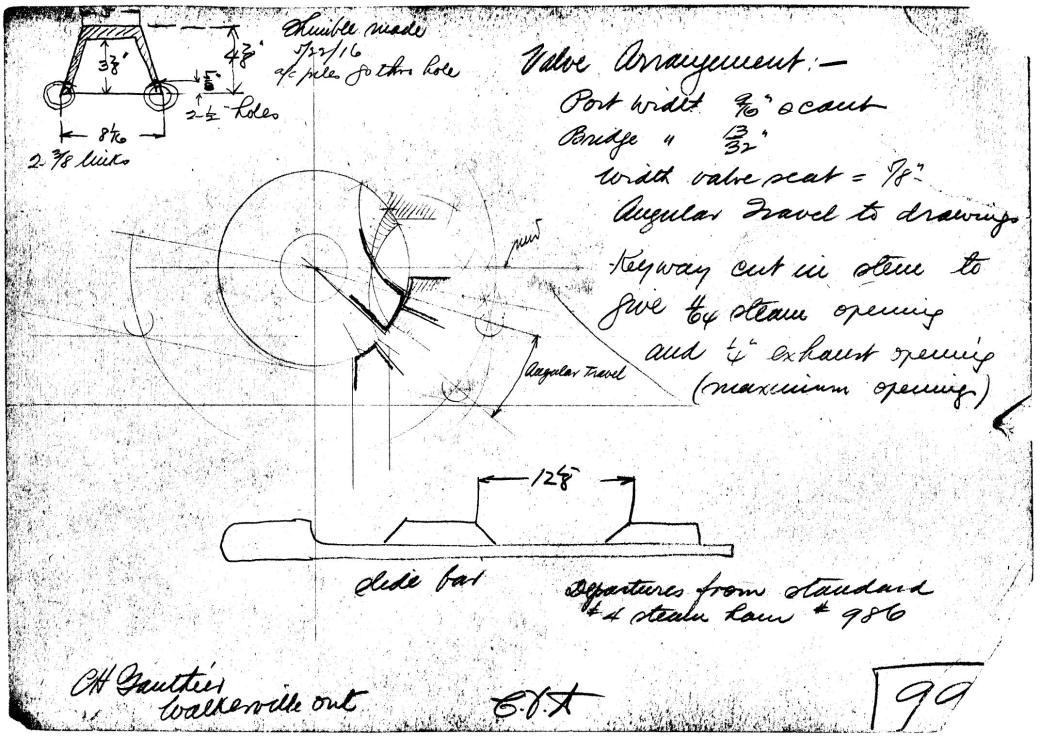 made
5/22/16
piles go thro hole
4 3/8"
3 3/8"
2 - 1/2" holes
8 1/16
2 3/8 links
Valve Arrangement:-
Port width 9/16" scant
Bridge " 13/32"
Width valve seat = 7/8"
Angular Travel to drawings
Keyway cut in stem to
give steam opening
and 1/4" exhaust opening
(maximum opening)
Angular Travel
12 5/8
Slide bar
Departures from standard
#4 steam ham # 986
CH Gauthier
Walkerville Ont
99